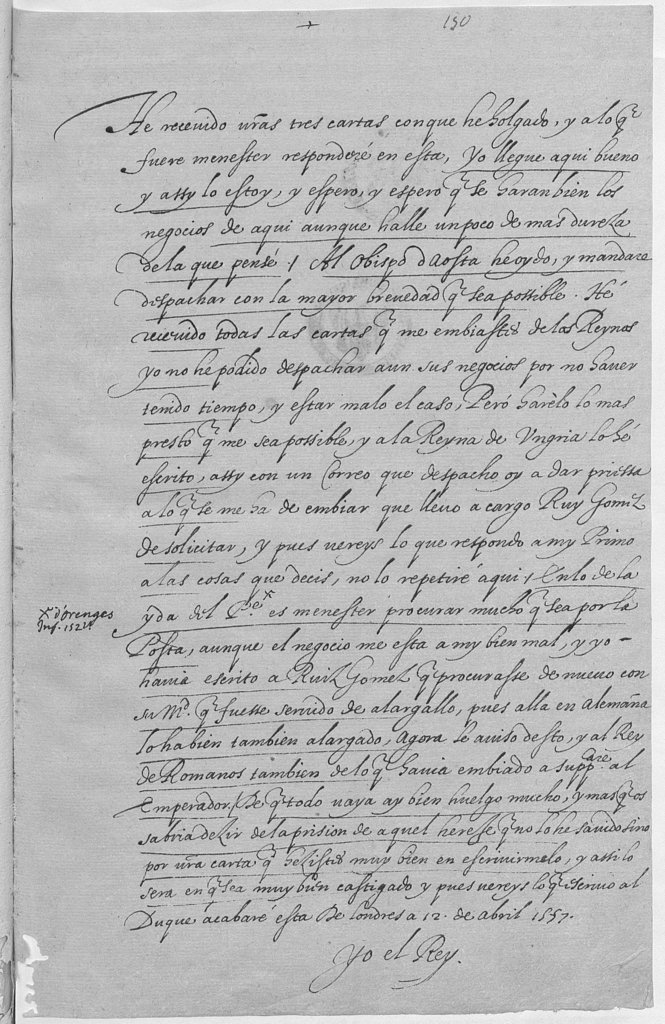 150
He receuido vr̃as tres cartas con que he holgado, y a lo q̃
fuere menester responderé en esta, yo llegue aqui bueno
y assy lo estoy, y espero, y espero q̃ se haran bien los
negocios de aqui aunque halle un poco de mas dureza
de la que pensé / Al Obispo d'Aosta he oydo, y mandare
despachar con la mayor breuedad q̃ sea possible. Hé
receuido todas las cartas q̃ me embiastes de los Reynos
yo no he podido despachar aun sus negocios por no hauer
tenido tiempo, y estar malo el caso, Peró harélo lo mas
presto q̃ me sea possible, y a la Reyna de Vngria lo hé
escrito, assy con un Correo que despacho oy a dar priessa
a lo q̃ se me ha de embiar que lleuo a cargo Ruy Gomez
de solicitar, y pues vereys lo que respondo a my Primo
a las cosas que decis, no lo repetiré aqui / En lo de la
yda del P.e x es menester procurar mucho q̃ sea por la
x d'Orenges
Inf. 152
Posta, aunque el negocio me esta a my bien mal, y yo
hauia escrito a Ruiz Gomez q̃ procurasse de nueuo con
su M.d q̃ fuesse seruido de alargallo, pues alla en Alemaña
lo habien tambien alargado, Agora le auiso desto, y al Rey
de Romanos tambien de lo q̃ hauia embiado a supp.care al
Emperador / De q̃ todo vaya ay bien huelgo mucho, y mas q̃ os
sabria dezir de la prision de aquel heresse q̃ no lo he sauido sino
por vr̃a carta q̃ hezistes muy bien en escriuirmelo, y assi lo
sera en q̃ sea muy bien castigado y pues vereys lo q̃ escriuo al
Duque acabaré esta De Londres a 12. de Abril 1557.
Yo el Rey.